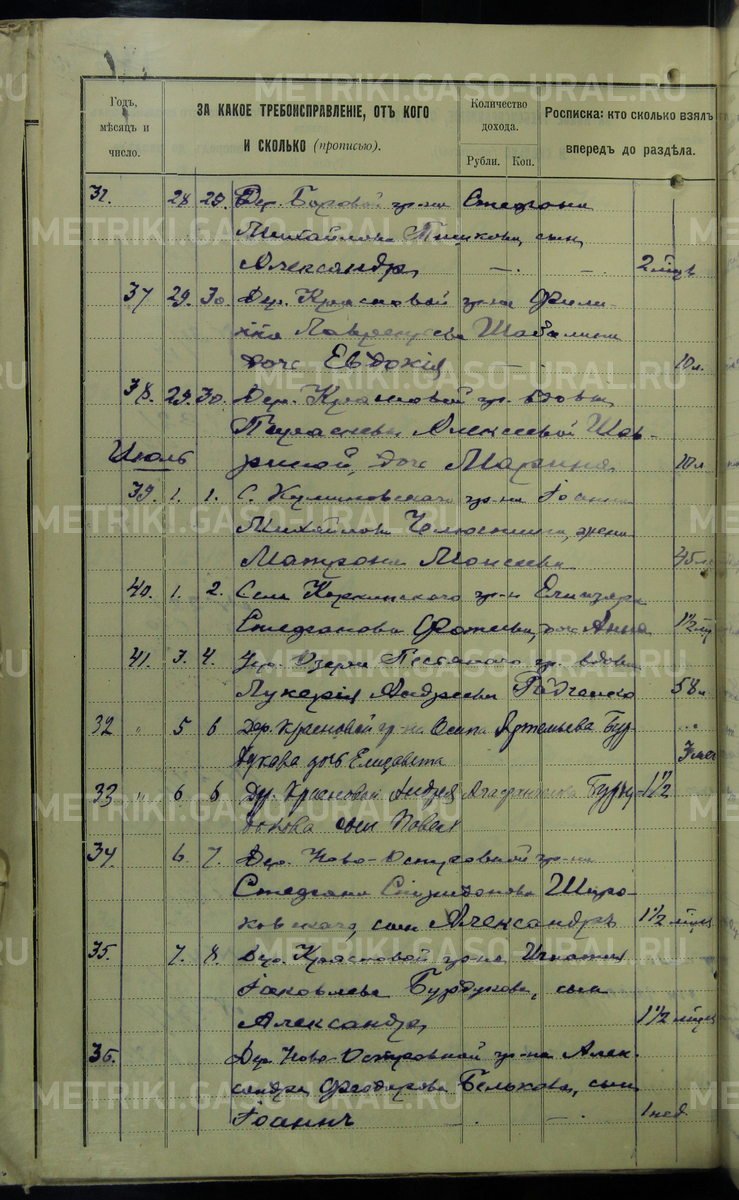 METRIKI.GASO-URAL.RU
Годъ, мѣсяцъ и число.
ЗА КАКОЕ ТРЕБОИСПРАВЛЕНІЕ, ОТЪ КОГО И СКОЛЬКО (прописью).
Количество дохода.
Рубли. Коп.
Росписка: кто сколько взялъ впередъ до раздѣла.
31. 28 29. Дер. Боровой гр-на Стефана
Михайлова сынъ
Александръ 2 мѣс
37 29. 30. Дер. Красновой гр-на Фили-
ппа Лаврентьева Шабалина
дочь Евдокія 10 л.
38. 29. 30. Дер. Красновой гр. вдовы
Алексеевой Шав-
Июль риной, дочь Марина 10 л
39. 1. 1. С. гр-на Іоанна
Михайлова жена
Матрона Моисеева 45 л
40. 1. 2. Села гр-на Елизара
Стефанова дочь Анна 1½
41. 3. 4. Дер. Озерки гр. вдова
Лукерія Андреева 58 л
32 " 5 6 Дер. Красновой гр-на Осипа Артемьева Бур-
дукова дочь Елизавета
33 " 6 6 Дер. Красновой Андрея Бурду- 1½
сын Павел
34 6. 7. Дер. Ново-Островной гр-на
Стефана Спиридонова Широ-
ковскаго, сын Александръ 1½ мѣсяц
35. 7. 8. Дер. Красновой гр-на Игнатия
Іаковлева Бурдукова, сын
Александръ 1½ мѣсяц
36. Дер. Ново-Островной гр-на Алек-
сандра Феодорова Белькова, сын
Іоаннъ 1 нед.